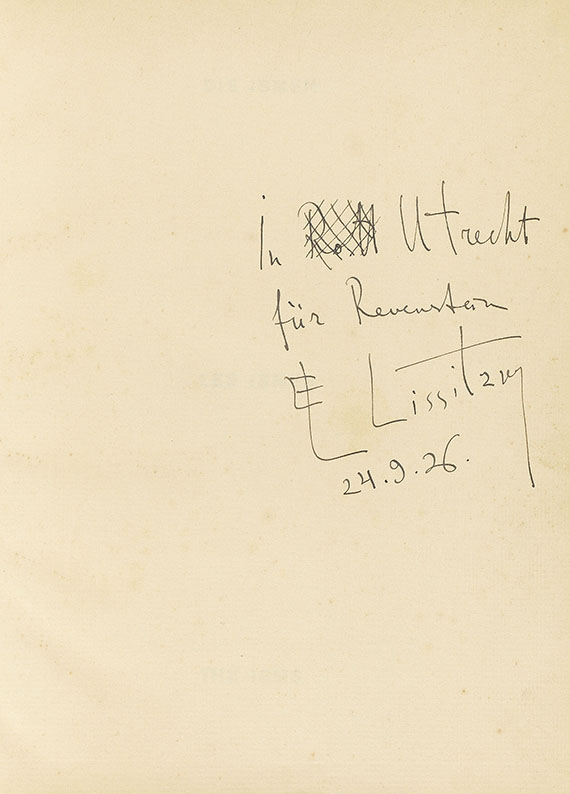 In Utrecht
für Revenstein
El Lissitzky
24.9.26.